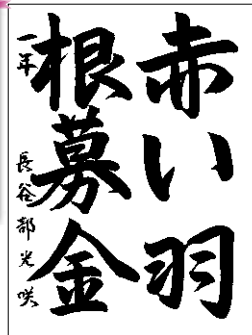 赤い羽
根募金
一年 長谷部光咲